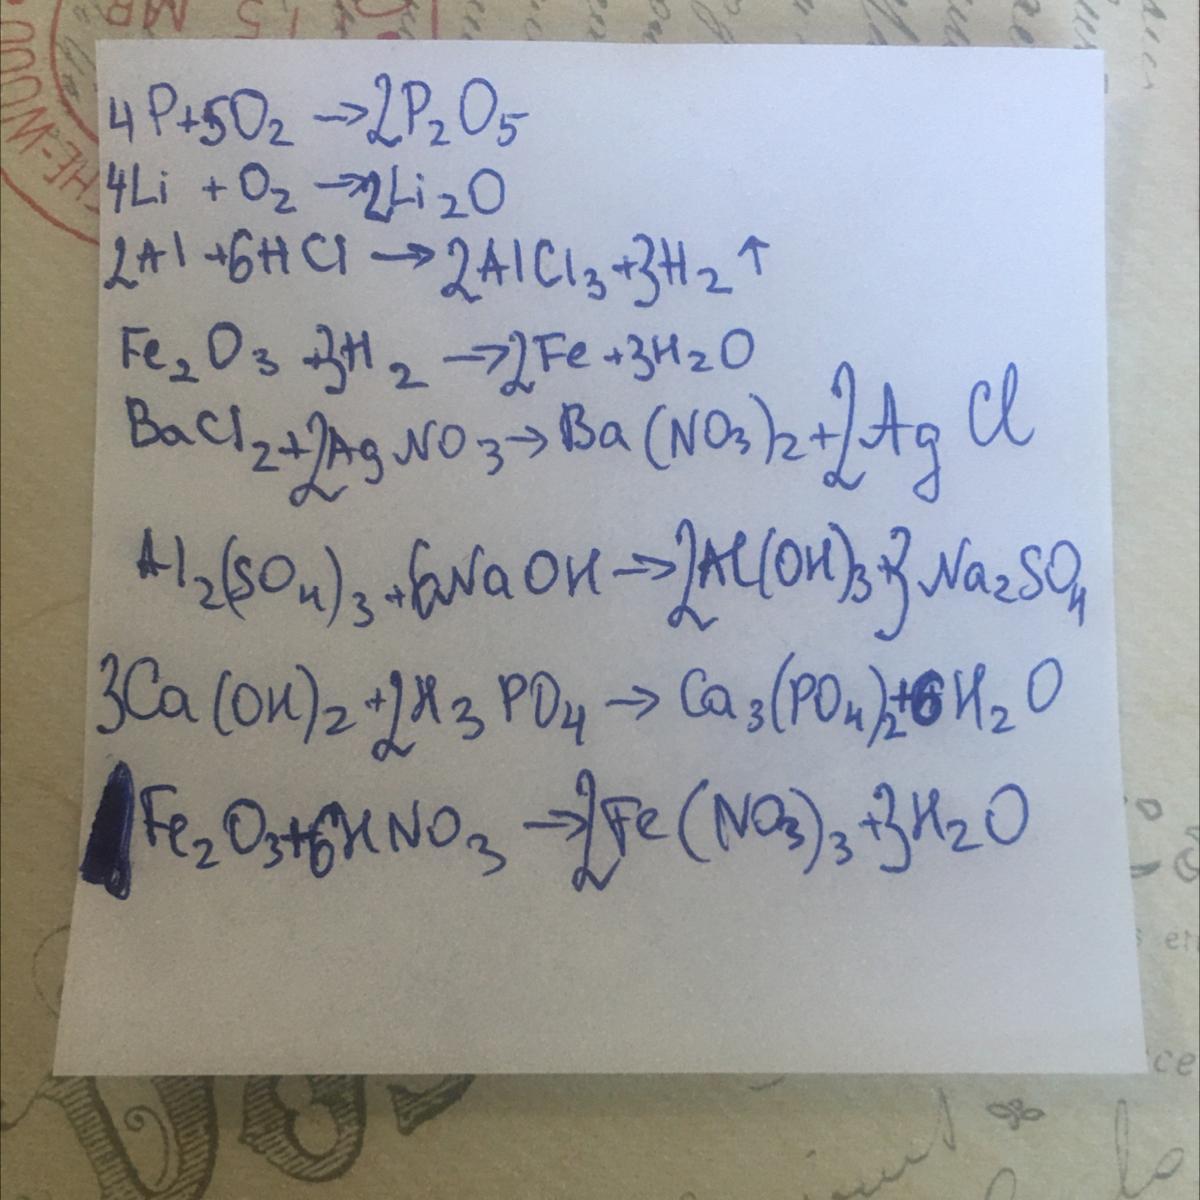 4P+5O₂ →2P₂O₅
4Li + O₂ →2Li₂O
2Al +6HCl → 2AlCl₃+3H₂↑
Fe₂O₃ +3H₂ →2Fe+3H₂O
BaCl₂+2AgNO₃→Ba(NO₃)₂+2AgCl
Al₂(SO₄)₃+6NaOH→2Al(OH)₃+3Na₂SO₄
3Ca(OH)₂+2H₃PO₄→Ca₃(PO₄)₂+6H₂O
Fe₂O₃+6HNO₃→2Fe(NO₃)₃+3H₂O